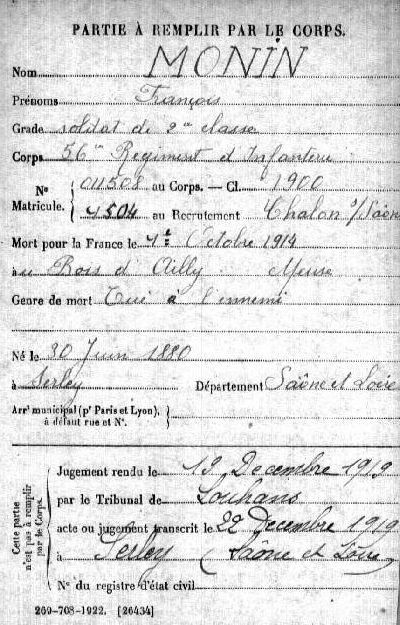 PARTIE À REMPLIR PAR LE CORPS.
Nom MONIN
Prénoms François
Grade soldat de 2me classe
Corps 56me Régiment d'Infanterie
Nº Matricule. 011508 au Corps. — Cl. 1900
1504 au Recrutement Chalon s/Saône
Mort pour la France le 1er Octobre 1914
au Bois d'Ailly Meuse
Genre de mort Tué à l'ennemi
Né le 30 Juin 1880
à Serley Département Saône et Loire
Arrt municipal (pr Paris et Lyon),
à défaut rue et Nº.
Cette partie
n'est pas à remplir
par le Corps.
Jugement rendu le 19 Decembre 1919
par le Tribunal de Louhans
acte ou jugement transcrit le 22 Decembre 1919
à Serley (Saône et Loire)
Nº du registre d'état civil
269-708-1922. [26434]